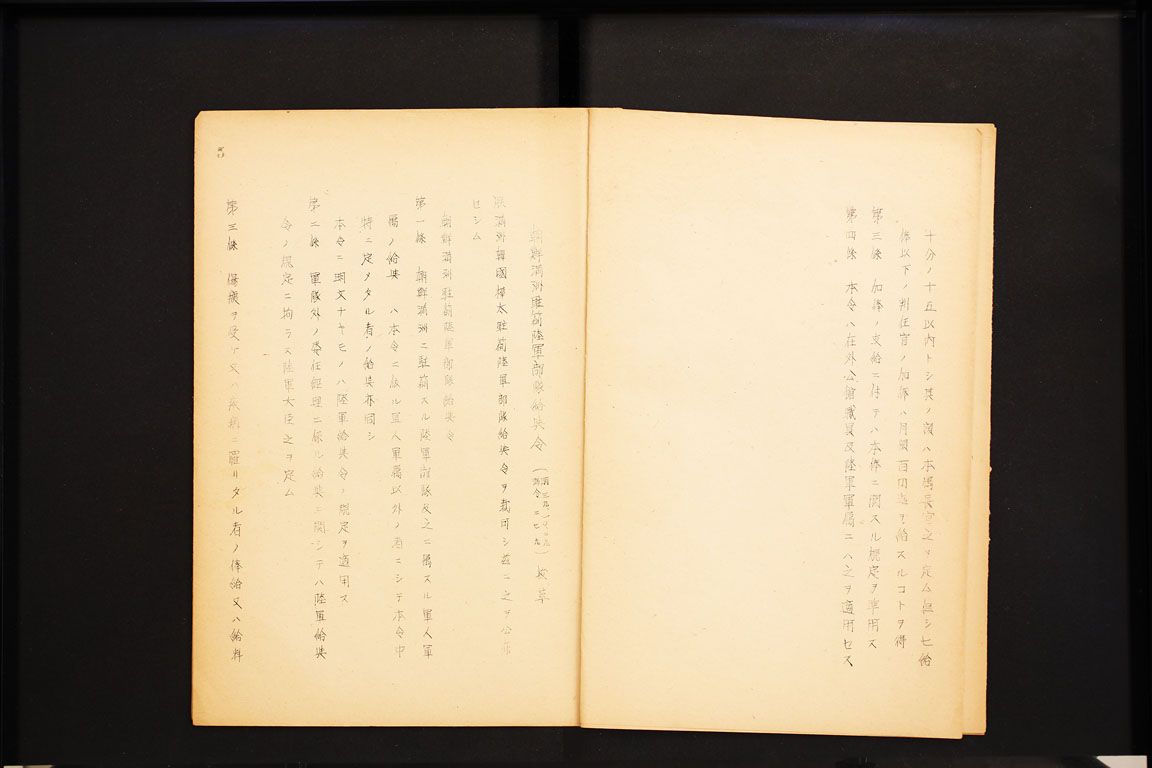 十分ノ十五以内トシ其ノ額ハ本属長官之ヲ定ム但シ七給
俸以下ノ判任官ノ加俸ハ月額百円迄ヲ給スルコトヲ得
第三條 加俸ノ支給ニ付テハ本俸ニ関スル規定ヲ準用ス
第四條 本令ハ在外公館職員及陸軍軍属ニハ之ヲ適用セス
朝鮮満洲駐箚陸軍部隊給與令
勅令二七九
朕満洲韓國樺太駐箚陸軍部隊給與令ヲ裁可シ茲ニ之ヲ公布
セシム
朝鮮満洲駐箚陸軍部隊給與令
第一條 朝鮮満洲ニ駐箚スル陸軍部隊及之ニ属スル軍人軍
属ノ給與ハ本令ニ依ル軍人軍属以外ノ者ニシテ本令中
特ニ定メタル者ノ給與亦同シ
本令ニ明文ナキモノハ陸軍給與令ノ規定ヲ適用ス
第二條 軍隊外ノ委任経理ニ係ル給與ニ関シテハ陸軍給與
令ノ規定ニ拘ラス陸軍大臣之ヲ定ム
第三條 傷痍ヲ受ケ又ハ疾病ニ罹リタル者ノ俸給又ハ給料